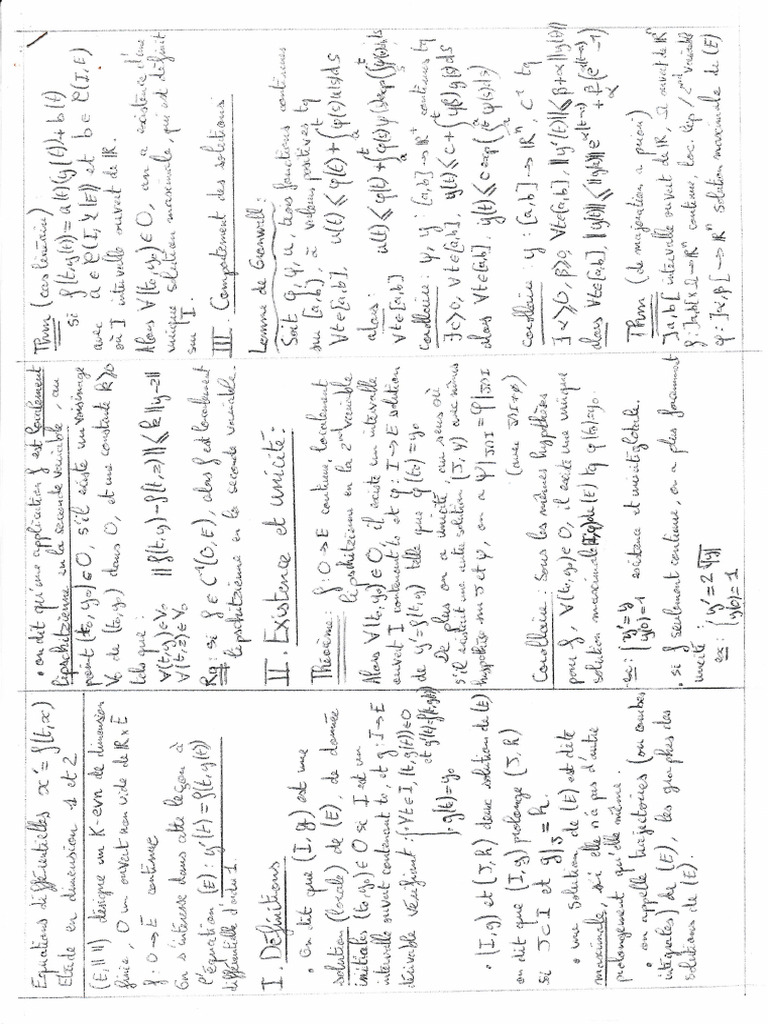 Equations différentielles x' = f(t,x)
Etude en dimension 1 et 2
(E, || ||) désigne un K-evn de dimension
finie, O un ouvert non vide de ℝ × E
f : O → E continue
On s'intéresse dans cette leçon à
l'équation (E) : y'(t) = f(t, y(t))
différentielle d'ordre 1.
I. Définitions
• On dit que (I, g) est une
solution (locale) de (E), de donnée
initiales (t₀, y₀) ∈ O si I est un
intervalle ouvert contenant t₀, et g : I → E
dérivable vérifiant : { • ∀t ∈ I, (t, g(t)) ∈ O
et g'(t) = f(t, g(t))
• g(t₀) = y₀
• (I, g) et (J, h) deux solution de (E)
on dit que (I, g) prolonge (J, h)
si J ⊂ I et g|_J = h.
• une solution de (E) est dite
maximale, si elle n'a pas d'autre
prolongement qu'elle même.
• on appelle trajectoires (ou courbes
intégrales) de (E), les graphes des
solutions de (E).
• on dit qu'une application f est localement
lipschitzienne en la seconde variable, au
point (t₀, y₀) ∈ O, s'il existe un voisinage
V₀ de (t₀, y₀) dans O, et une constante k ≥ 0
tels que :
∀(t,y) ∈ V₀
∀(t,z) ∈ V₀ || f(t,y) - f(t,z) || ≤ k || y-z ||
Rq : si f ∈ C¹(O, E), alors f est localement
lipschitzienne en la seconde variable.
II. Existence et unicité :
Théorème : f : O → E continue, localement
lipschitzienne en la 2nde variable
Alors ∀(t₀, y₀) ∈ O, il existe un intervalle
ouvert I contenant t₀ et φ : I → E solution
de y' = f(t,y) telle que φ(t₀) = y₀
De plus on a unicité, au sens où
s'il existait une autre solution (J, ψ) avec mêmes
hypothèses sur J et ψ, on a ψ|_{J∩I} = φ|_{J∩I}
(avec J∩I ≠ ∅)
Corollaire : Sous les mêmes hypothèses
pour f, ∀(t₀, y₀) ∈ O, il existe une unique
solution maximale de (E) tq φ(t₀) = y₀.
ex : { y' = y
y(0) = 1 existence et unicité globale.
• si f seulement continue, on a plus forcément
unicité :
ex : { y' = 2√|y|
y(0) = 1
Thm (cas linéaire)
si f(t, y(t)) = a(t)(y(t)) + b(t)
avec a ∈ C(I, L(E)) et b ∈ C(I, E)
où I intervalle ouvert de ℝ.
Alors ∀(t₀, y₀) ∈ O, on a existence d'une
unique solution maximale, qui est définit
sur I.
III Comportement des solutions
Lemme de Gronwall :
Soit φ, ψ, u trois fonctions continues
sur [a,b], à valeurs positives tq
∀t ∈ [a,b], u(t) ≤ φ(t) + ∫ₐᵗ ψ(s)u(s)ds
alors :
∀t ∈ [a,b] u(t) ≤ φ(t) + ∫ₐᵗ φ(s)ψ(s)exp(∫ₛᵗ ψ(u)du)ds
Corollaire : ψ, y : [a,b] → ℝ⁺ continues tq
∃c ≥ 0, ∀t ∈ [a,b], y(t) ≤ c + ∫ₐᵗ ψ(s)y(s)ds
alors ∀t ∈ [a,b], y(t) ≤ c exp(∫ₐᵗ ψ(s)ds)
Corollaire : y : [a,b] → ℝⁿ, C¹ tq
∃ α ≥ 0, β ≥ 0, ∀t ∈ [a,b], ||y'(t)|| ≤ β + α||y(t)||
alors ∀t ∈ [a,b] ||y(t)|| ≤ ||y(a)|| e^{α(t-a)} + β/α (e^{α(t-a)} - 1)
Thm (de majoration a priori)
]a,b[ intervalle ouvert de ℝ, Ω ouvert de ℝⁿ
f : ]a,b[ × Ω → ℝⁿ continue, loc. lip / 2nde variable
φ : ]α,β[ → ℝⁿ solution maximale de (E)